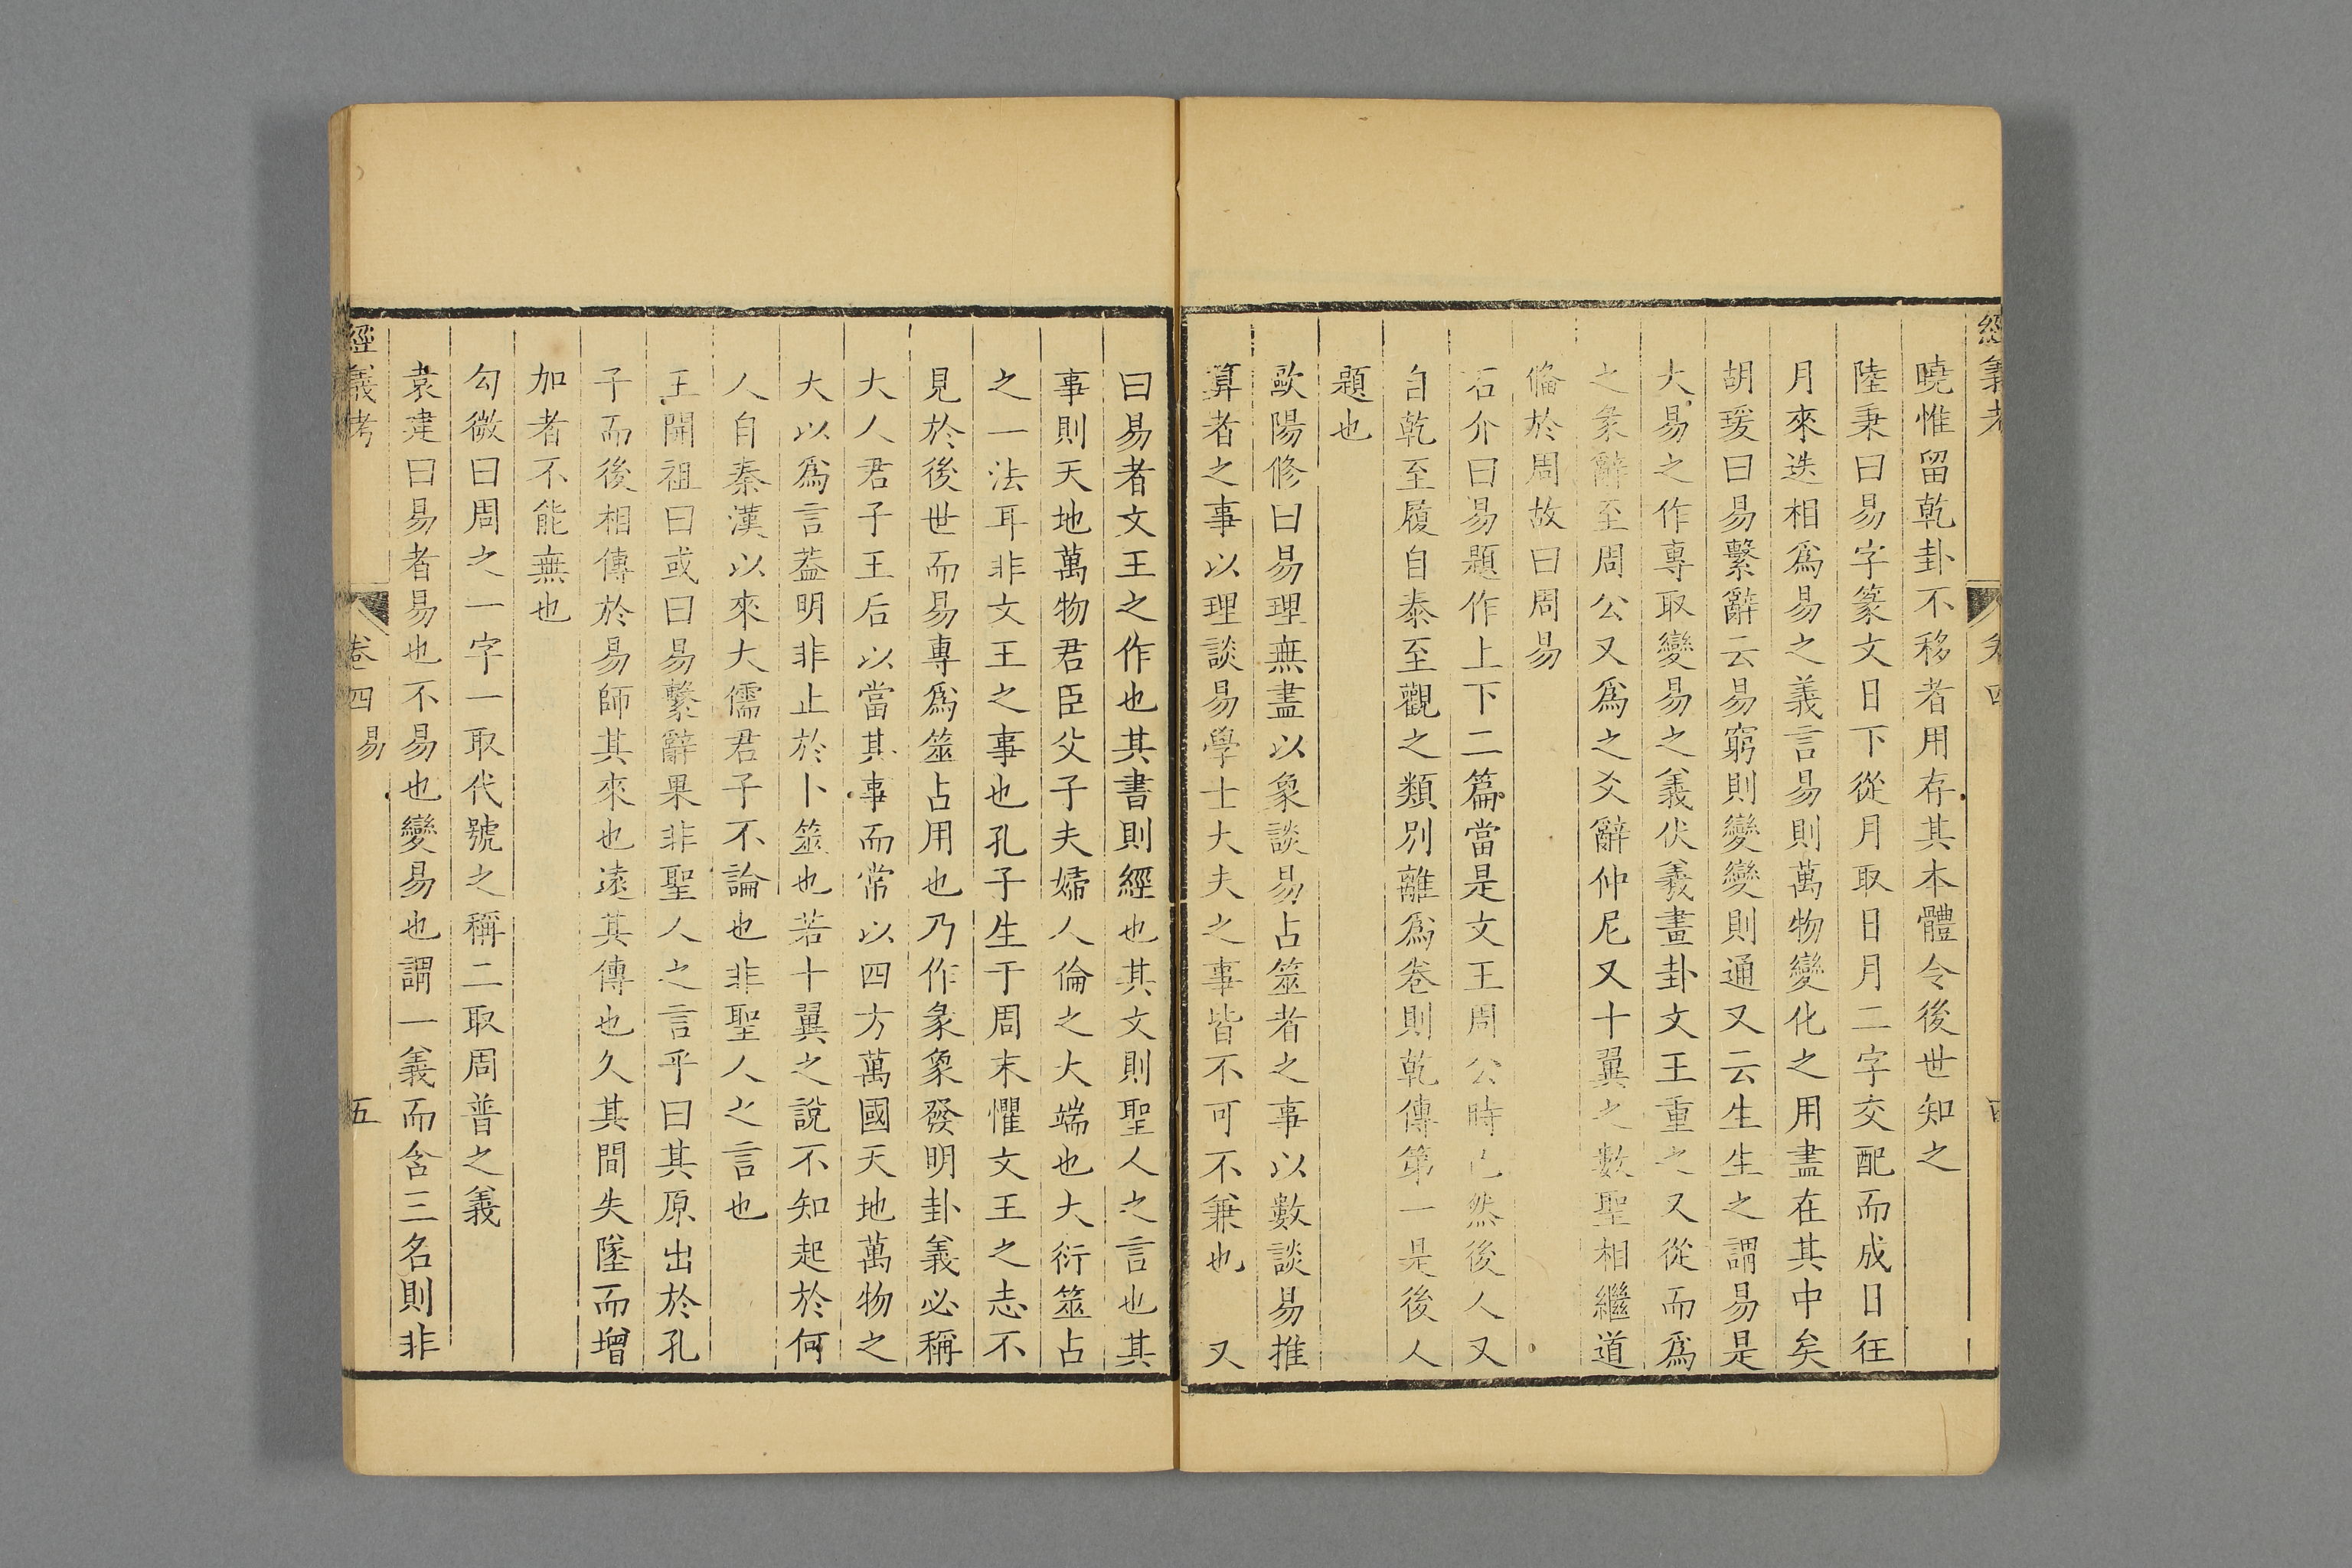 經義考
卷四
四
曉惟留乾卦不移者用存其本體令後世知之
陸秉曰易字篆文日下從月取日月二字交配而成日往
月來迭相爲易之義言易則萬物變化之用盡在其中矣
胡瑗曰易繫辭云易窮則變變則通又云生生之謂易是
大易之作專取變易之義伏羲畫卦文王重之又從而爲
之彖辭至周公又爲之爻辭仲尼又十翼之數聖相繼道
僃於周故曰周易
石介曰易題作上下二篇當是文王周公時已然後人又
自乾至履自泰至觀之類別離爲卷則乾傳第一是後人
題也
歐陽修曰易理無盡以象談易占筮者之事以數談易推
算者之事以理談易學士大夫之事皆不可不兼也　又
曰易者文王之作也其書則經也其文則聖人之言也其
事則天地萬物君臣父子夫婦人倫之大端也大衍筮占
之一法耳非文王之事也孔子生于周末懼文王之志不
見於後世而易專爲筮占用也乃作彖象發明卦義必稱
大人君子王后以當其事而常以四方萬國天地萬物之
大以爲言葢明非止於卜筮也若十翼之說不知起於何
人自秦漢以來大儒君子不論也非聖人之言也
王開祖曰或曰易繫辭果非聖人之言乎曰其原出於孔
子而後相傳於易師其來也遠其傳也久其間失墜而增
加者不能無也
勾微曰周之一字一取代號之稱二取周普之義
袁建曰易者易也不易也變易也謂一義而含三名則非
經義考
卷四易
五